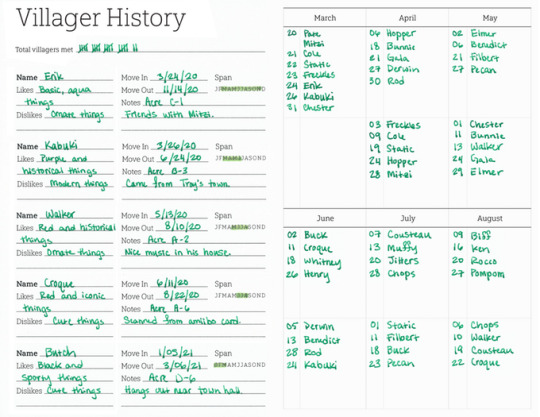 Villager History
Total villagers met
Name Erik Move In 3/24/20 Span
Likes Basic, aqua Move Out 11/14/20 JFMAMJJASOND
things Notes Acre C-1
Dislikes Ornate things Friends with Mitzi.
Name Kabuki Move In 3/26/20 Span
Likes Purple and Move Out 6/24/20 JFMAMJJASOND
historical things Notes Acre B-3
Dislikes Modern things Came from Troy's town.
Name Walker Move In 5/13/20 Span
Likes Red and historical Move Out 8/10/20 JFMAMJJASOND
things Notes Acre A-2
Dislikes Ornate things Nice music in his house.
Name Croque Move In 6/11/20 Span
Likes Red and iconic Move Out 8/22/20 JFMAMJJASOND
things Notes Acre A-6
Dislikes Cute things Scanned from amiibo card.
Name Butch Move In 1/05/21 Span
Likes Black and Move Out 3/06/21 JFMAMJJASOND
sporty things Notes Acre D-6
Dislikes Cute things Hangs out near town hall.
March
20 Pate
Mitzi
21 Cole
22 Static
23 Freckles
24 Erik
26 Kabuki
31 Chester
April
04 Hopper
18 Bunnie
21 Gala
27 Derwin
30 Rod
03 Freckles
09 Cole
19 Static
24 Hopper
28 Mitzi
May
02 Elmer
06 Benedict
21 Filbert
27 Pecan
01 Chester
11 Bunnie
13 Walker
24 Gala
29 Elmer
June
02 Buck
11 Croque
18 Whitney
26 Henry
05 Derwin
13 Benedict
28 Rod
24 Kabuki
July
07 Cousteau
13 Muffy
20 Jitters
28 Chops
01 Static
11 Filbert
18 Buck
23 Pecan
August
09 Biff
16 Ken
20 Rocco
27 Pompom
06 Chops
10 Walker
19 Cousteau
22 Croque